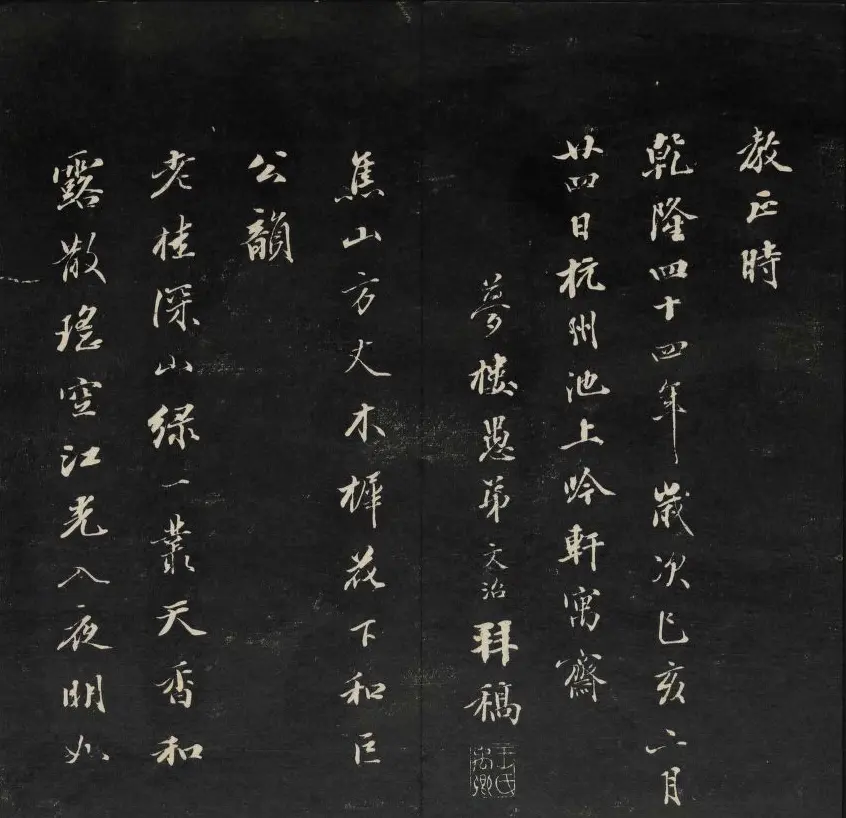 教正時
乾隆四十四年歲次己亥六月
廿四日杭州池上吟軒寓齋
夢樓愚弟文治拜稿
王氏禹卿
焦山方丈木樨花下和巨
公韻
老桂深山綠一叢天香和
露散瑤空江光入夜明如